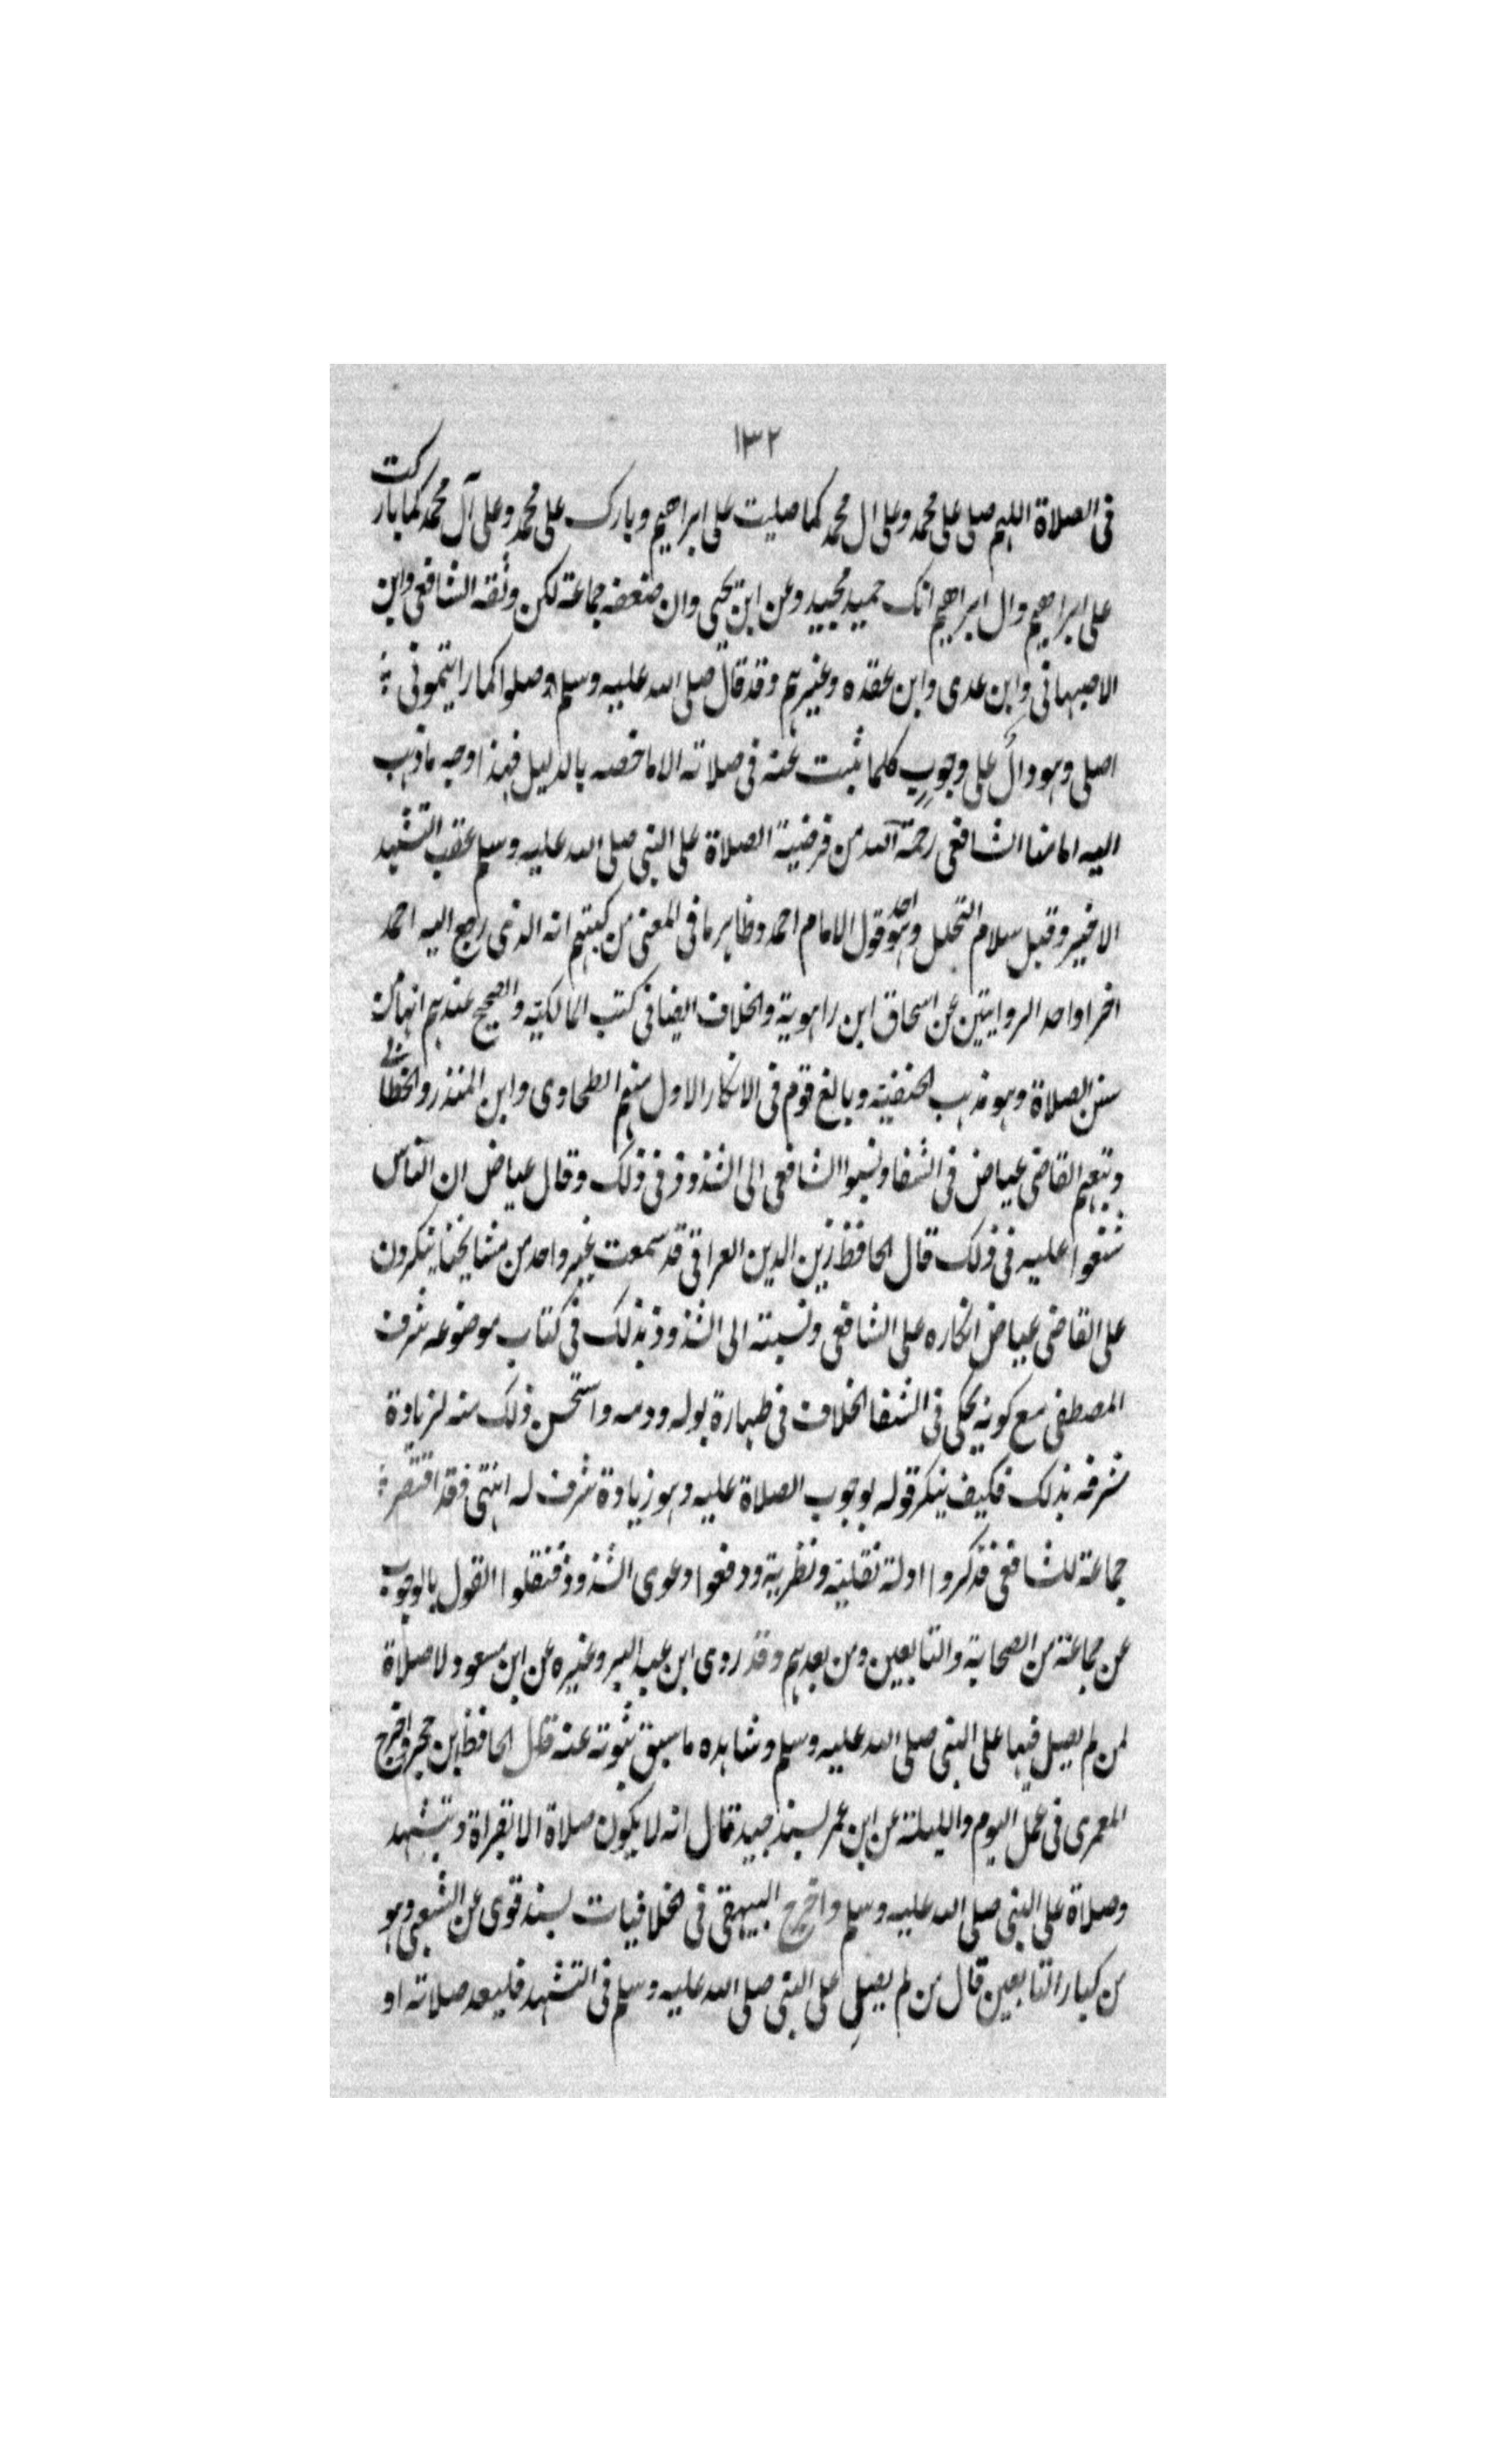 ١٣٢
فى الصلاة اللهم صلى على محمد وعلى ال محمد كما صليت على ابراهيم وبارك على محمد وعلى آل محمد كما باركت
على ابراهيم وال ابراهيم انك حميد مجيد وعن ابن يحيى وان ضعفه جماعة لكن وثقه الشافعى وابن
الاصبهانى وابن عدى وابن عقده وغيرهم وقد قال صلى الله عليه وسلم وصلوا كما رايتمونى
اصلى وهو دالٌ على وجوبٍ كلما ثبت عنه فى صلاته الا ما خصه بالدليل فهذا وجه ما ذهب
اليه امامنا الشافعى رحمة الله من فرضية الصلاة على النبى صلى الله عليه وسلم عقب التشهد
الاخير وقبل سلام التحلل وهو احد قول الامام احمد وظاهر ما فى المغنى من كبتهم انه الذى رجع اليه احمد
اخرا واحد الروايتين عن اسحاق ابن راهوية والخلاف ايضا فى كتب المالكية والصحيح عندهم انها من
سنن الصلاة وهو مذهب الحنفية وبالغ قوم فى الانكار الاول منهم الطحاوى وابن المنذر والخطابى
وتبعهم القاضى عياض فى الشفا ونسبوا الشافعى الى الشذوذ فى ذلك وقال عياض ان الناس
شنعوا عليه فى ذلك قال الحافظ زين الدين العراقى قد سمعت غير واحد من مشايخنا ينكرون
على القاضى عياض انكاره على الشافعى ونسبته الى الشذوذ بذلك فى كتاب موضوعه شرف
المصطفى مع كونه يحكى فى الشفا الخلاف فى طهارة بوله ودمه واستحسن ذلك منه لزيادة
شرفه بذلك فكيف ينكر قوله بوجوب الصلاة عليه وهو زيادة شرف له انتهى فقد اقتصر
جماعة للشافعى فذكروا ادلة نقلية ونظرية ودفعوا دعوى الشذوذ فنقلوا القول بالوجوب
عن جماعة من الصحابة والتابعين ومن بعدهم وقد روى ابن عبد البر وغيره عن ابن مسعود لا صلاة
لمن لم يصل فيها على النبى صلى الله عليه وسلم وشاهده ما سبق ثبوته عنه قال الحافظ ابن حجر واخرج
المعمرى فى عمل اليوم والليلة عن ابن عمر بسند جيد قال انه لا يكون صلاة الا بقراة وتشهد
وصلاة على النبى صلى الله عليه وسلم واخرج البيهقى فى الخلافيات بسند قوى عن الشعبى وهو
من كبار التابعين قال من لم يصلِ على النبى صلى الله عليه وسلم فى التشهد فليعد صلاته او